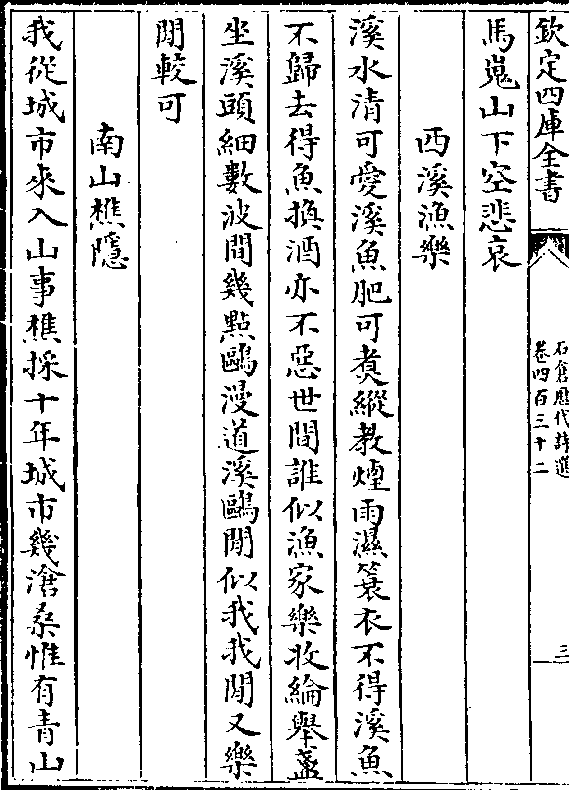 欽定四庫全書
石倉歷代詩選
卷四百三十二
三
馬嵬山下空悲哀
西溪漁樂
溪水清可愛溪魚肥可煑縱教煙雨濕簑衣不得溪魚
不歸去得魚換酒亦不惡世間誰似漁家樂收綸舉盞
坐溪頭細數波間幾點鷗漫道溪鷗閒似我我閒又樂
閒較可
南山樵隱
我從城市來入山事樵採十年城市幾滄桑惟有青山